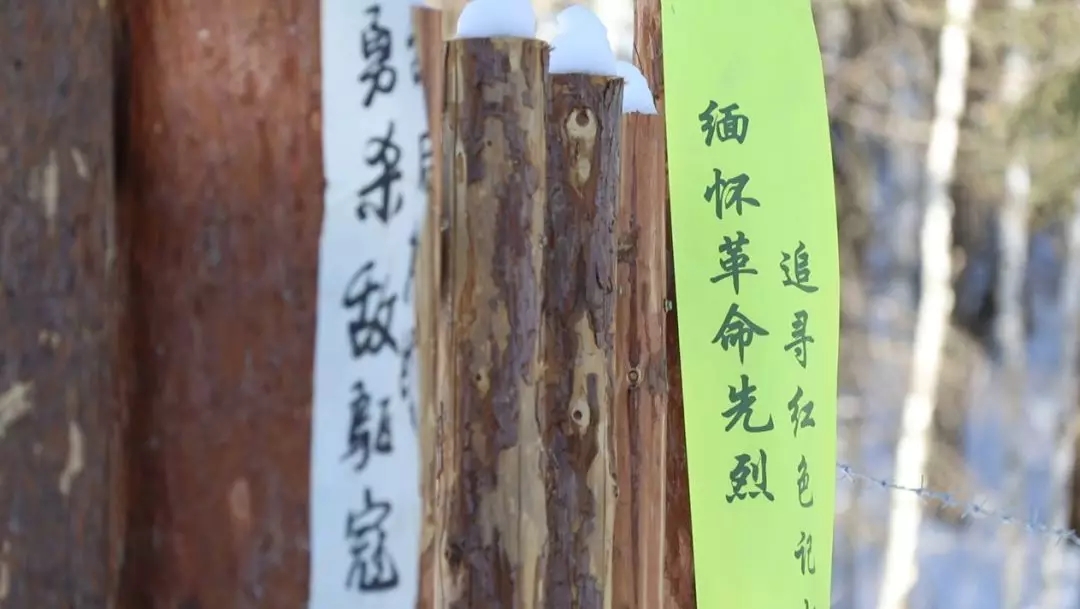 勇杀敌驱寇
缅怀革命先烈
追寻红色记